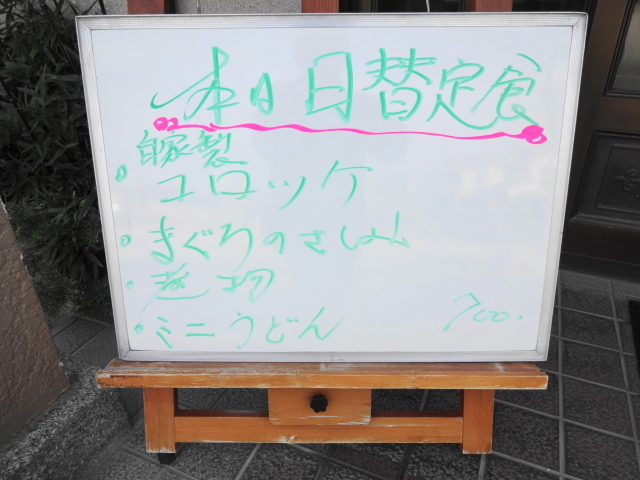 本日日替定食
自家製
・コロッケ
・まぐろのさしみ
・煮物
・ミニうどん
700.